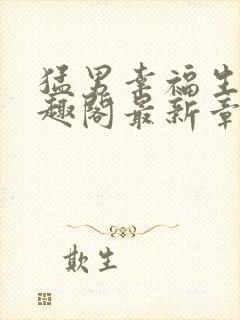 猛男幸福生
趣阁最新章
欺生